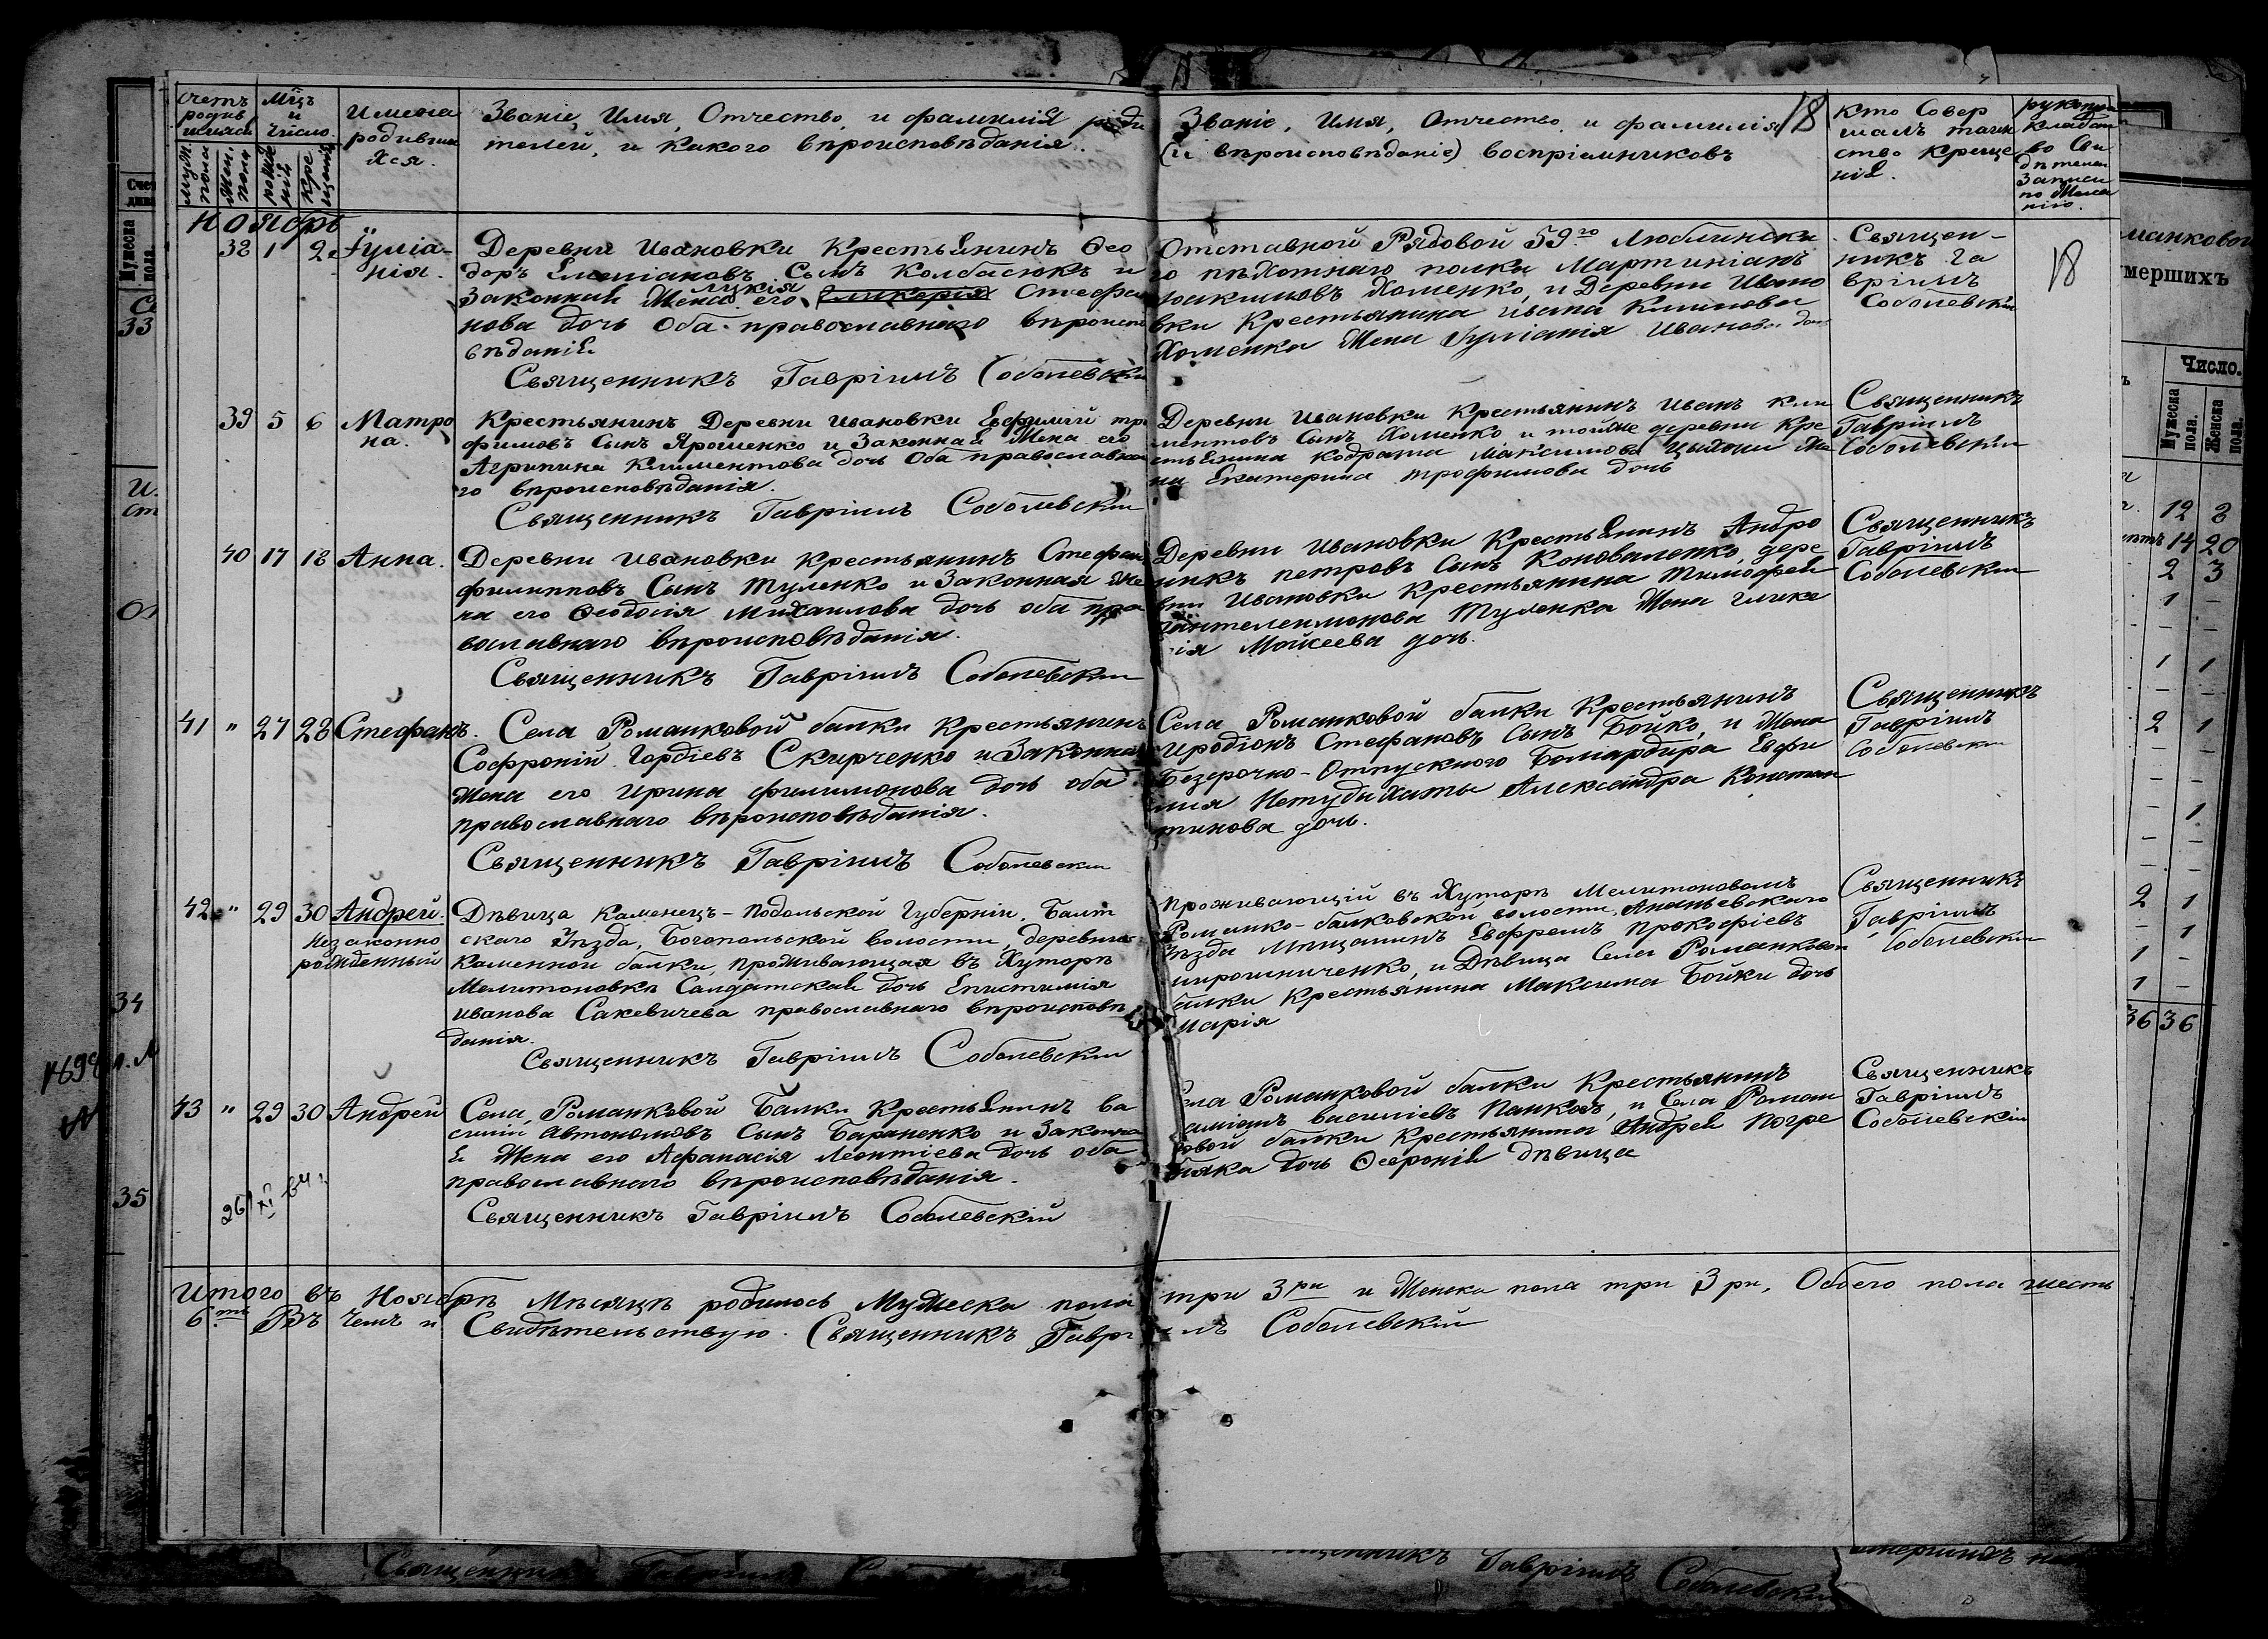 Счетъ родив шихся
Мцъ и Число.
муж. пола
жен. пола
рожде нія
кре щенія
Имена родивших ся.
Званіе, Имя, Отчество, и фамилія роди
телей, и какого вѣроисповѣданія.
Званіе, Имя, Отчество, и фамилія
(и вѣроисповѣданіе) воспріемниковъ
18
Кто Совер
шалъ таин
ство креще
нія.
рукопри
кладст
во Сви
дѣтелей
Записи
по жела
нію.
Ноябрь
38 1 2 Іуліа-
нія.
Деревни Ивановки Крестьянинъ Ѳео
доръ Емеліановъ Сынъ Колбасюкъ и
Законная Жена его Гликерія Лукія Стефа
нова дочь Оба православнаго вѣроиспо
вѣданія
Священникъ Гавріилъ Соболевскій
Отставной Рядовой 59го Люблинска
го пѣхотнаго полка Мартиніанъ
Іоакимовъ Хоменко, и Деревни Ивано
вки Крестьянина Ивана Климова
Хоменка Жена Іуліанія Иванова дочь
Священ-
никъ Га
вріилъ
Соболевскій
18
39 5 6 Матро
на.
Крестьянинъ Деревни Ивановки Евфимій тро
фимовъ Сынъ Ярошенко и Законная Жена его
Агрипина Климентова дочь Оба православна
го вѣроисповѣданія.
Священникъ Гавріилъ Соболевскій
Деревни Ивановки Крестьянинъ Иванъ Кли
ментовъ Сынъ Хоменко и тойже деревни Кре
стьянина Кодрата Максимова Цыхоци Же
на Екатерина трофимова дочь
Священникъ
Гавріилъ
Соболевскій
40 17 18 Анна.
Деревни Ивановки Крестьянинъ Стефанъ
филипповъ Сынъ Туленко и Законная Же
на его Ѳеодосія Михаилова дочь оба пра
вославнаго вѣроисповѣданія.
Священникъ Гавріилъ Соболевскій
Деревни Ивановки Крестьянинъ Андро
никъ петровъ Сынъ Коноваленко, дере
вни Ивановки Крестьянина Тимофея
Пантелеимонова Туленка Жена Глике
рія Мойсеева дочь.
Священникъ
Гавріилъ
Соболевскій
41 " 27 28 Стефанъ.
Села Романковой балки Крестьянинъ
Софроній Гордіевъ Скирченко и Законная
Жена его Ирина филимонова дочь оба
православнаго вѣроисповѣданія.
Священникъ Гавріилъ Соболевскій
Села Романковой балки Крестьянинъ
Иродіонъ Стефановъ Сынъ Бойко, и Жена
Безсрочно-Отпускного Бомардира Евфи
мія Нетудыхаты Александра Констан
тинова дочь.
Священникъ
Гавріилъ
Соболевскій
42 " 29 30 Андрей.
Незаконно
рожденный
Дѣвица Каменецъ-Подольской Губерніи, Балт
скаго Уѣзда, Богопольской волости, деревни
Каменной балки, проживающая въ Хуторѣ
Мелитоновкѣ Салдатская дочь Епистимія
Иванова Сакевичева православнаго вѣроисповѣ
данія.
Священникъ Гавріилъ Соболевскій
Проживающій въ Хуторѣ Мелитоновомъ
Романко-балковской волости, Ананьевскаго
Уѣзда Мѣщанинъ Евфремъ Прокофіевъ
мирошниченко, и Дѣвица Села Романковой
балки Крестьянина Максима Бойки дочь
Марія
Священникъ
Гавріилъ
Соболевскій
43 " 29 30 Андрей
Села Романковой Балки Крестьянинъ Ва
силій Автономовъ Сынъ Бараненко и Законна
я Жена его Афанасія Леонтіева дочь оба
православнаго вѣроисповѣданія.
Священникъ Гавріилъ Соболевскій
Села Романковой балки Крестьянинъ
Василіевъ Панковъ, и Села Роман
ковой балки Крестьянина Андрея Погре
бняка дочь Ѳевронія дѣвица
Священникъ
Гавріилъ
Соболевскій
26 XI
Итого въ Ноябрѣ Мѣсяцѣ родилось Мужеска пола три 3ри и Женска пола три 3ри, Обоего пола шесть
6ть Въ чемъ и Свидѣтельствую. Священникъ Гавріилъ Соболевскій
33
34
35
манковой
мершихъ
Число.
Мужеска пола.
Женска пола.
12 8
14 20
2 3
1 –
– –
1 1
– –
2 1
– –
– –
– 1
– –
– –
2 1
– 1
1 –
1 –
36 36
Священникъ Гавріилъ
Гавріилъ Соболевскій